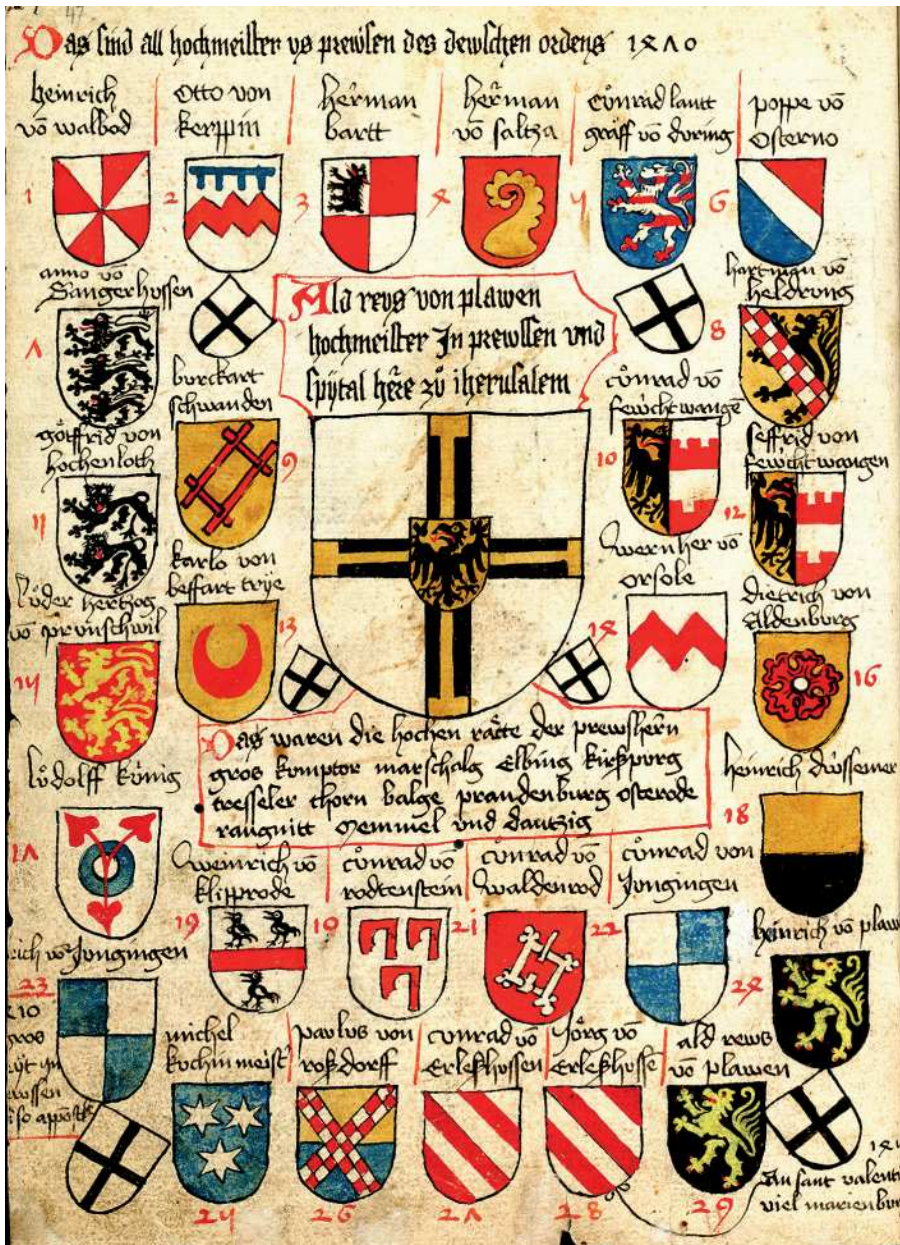 47
Das sind all hochmeister vs prewsen des dewschen ordens 1470
heinrich
vo walbod
Otto von
kerppin
herman
bartt
herman
vo saltza
conrad lantt
graff vo during
poppe vo
Osterno
1
2
3
4
5
6
anno vo
Sangerhussen
7
Ald reus von plawen
hochmeister In prewssen vnd
spytal here zu iherusalem
hartman vo
heldrong
8
burckart
schwanden
9
conrad vo
fewchtwange
10
gotffrid von
hochenloch
11
seffrid von
fewchtwangen
12
karlo von
beffart trye
13
wernher vo
orsole
14
luder hertzog
vo prunschwil
15
dietrich von
Aldenburg
16
Das waren die hochen rätte der prewshern
gros komptor marschalg Elbing kirßpurg
tresseler thorn balge prandenburg osterode
rangnitt Memmel vnd dantzig
ludolff kunig
17
heinrich dussemer
18
weinrich vo
kliprode
19
conrad vo
rodtenstein
10
conrad vo
waldenrod
21
conrad von
Jungingen
22
rich vo Jungingen
23
heinrich vo plaw
24
michel
kochinmeist
25
pavlus von
roßdorff
26
conrad vo
Erleßhussen
27
Jörg vo
Erleßhusse
28
ald rews
vo plawen
29
An sant valent
viel marienbur